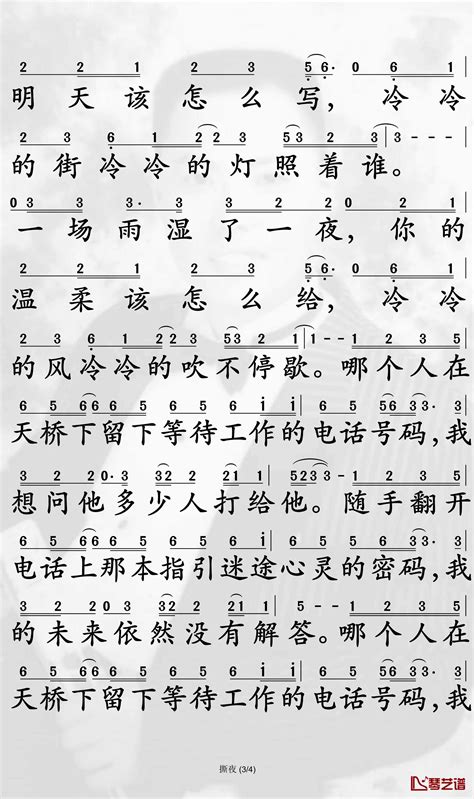 2 2 1 2 3 5 6· 0 6 1
明天该怎么写，冷冷
2 3 6 1 2 2 3 5 3 2 3 - - -
的街冷冷的灯照着谁。
0 3 6 1 3 3 3 2 2 - - 0 3 1
一场雨湿了一夜，你的
2 2 1 2 3 5 6· 0 6 1
温柔该怎么给，冷冷
2 3 6 1 2 2 3 2 1 1 - - 1 2 3 5
的风冷冷的吹不停歇。哪个人在
6 5 6 6 6 5 6 5 6 i i 6 5 6 3 3· 3
天桥下留下等待工作的电话号码，我
3 2 2 0· 3 3 2 2 2 1 5 2 3 - 1 2 3 5
想问他多少人打给他。随手翻开
6 5 6 6 6 5 6 5 6 i i 5 6 3 3· 3
电话上那本指引迷途心灵的密码，我
3 2 2 0· 3 2 2 1 1 - - 1 2 3 5
的未来依然没有解答。哪个人在
6 5 6 6 6 5 6 5 6 i i 5 6 3 3· 3
天桥下留下等待工作的电话号码，我
撕夜 (3/4)
琴艺谱